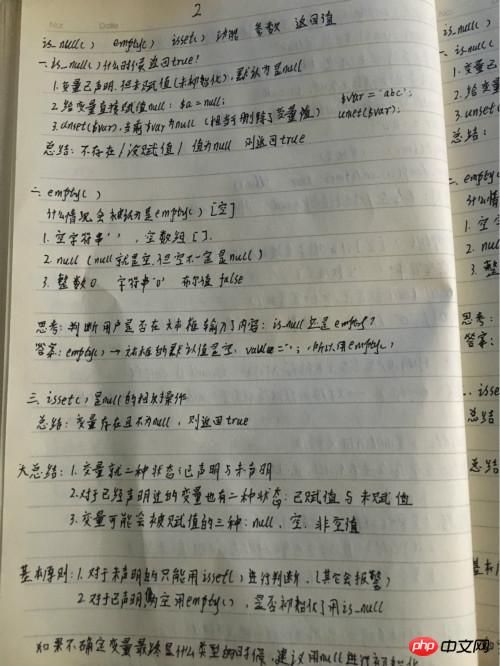 No:
Date
2
is_null() empty() isset() 功能 参数 返回值
一. is_null() 什么时候返回true?
1.变量已声明,但未赋值(未初始化),默认为是null
2.给变量直接赋值null: $a = null;
$var = 'abc';
3.unset($var),当前$var为null (相当于删除了变量值) unset($var);
总结: 不存在/没赋值/值为null 则返回true
二. empty()
什么情况会被认为是empty() [空]
1. 空字符串' ', 空数组 [].
2. null (null就是空,但空不一定是null)
3. 整数0 字符串'0' 布尔值 false
思考: 判断用户是否在文本框输入了内容: is_null 还是 empty?
答案: empty() → 文本框的默认值是空, value=''; 所以用empty()
三. isset() 是null的相反操作
总结: 变量存在且不为null, 则返回true
大总结: 1.变量就二种状态:已声明与未声明
2.对于已经声明过的变量也有二种状态: 已赋值 与 未赋值
3.变量可能会被赋值的三种: null, 空, 非空值
基本原则: 1.对于未声明的只能用isset()进行判断. (其它会报警)
2.对于已声明的空用empty(), 是否初始化了用is_null
如果不确定变量最终是什么类型的时候,建议用null进行初始化
is_null()
一. is_null
1.变量已
2.给变
3.un
总结:
二. empty
什么情
1. 空
2. nul
3. 整
思考:
答案:
isse
总结
大总结
基本
php中文网